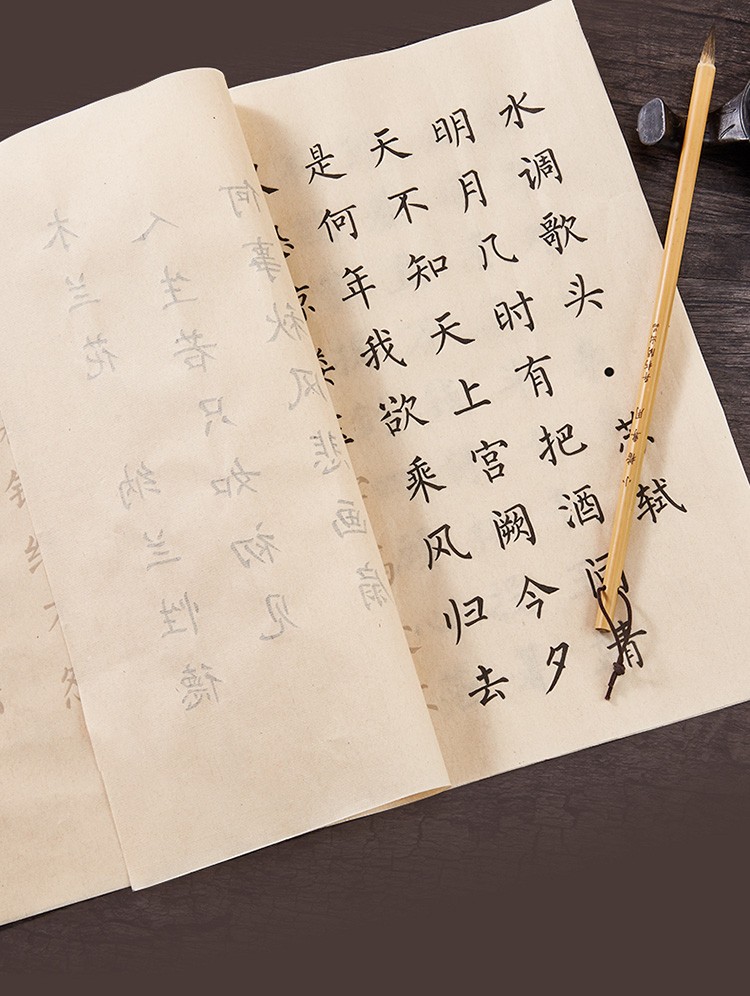 水调歌头·苏轼
明月几时有把酒问青
天不知天上宫阙今夕
是何年我欲乘风归去
木兰花 纳兰性德
人生若只如初见
何事秋风悲画扇